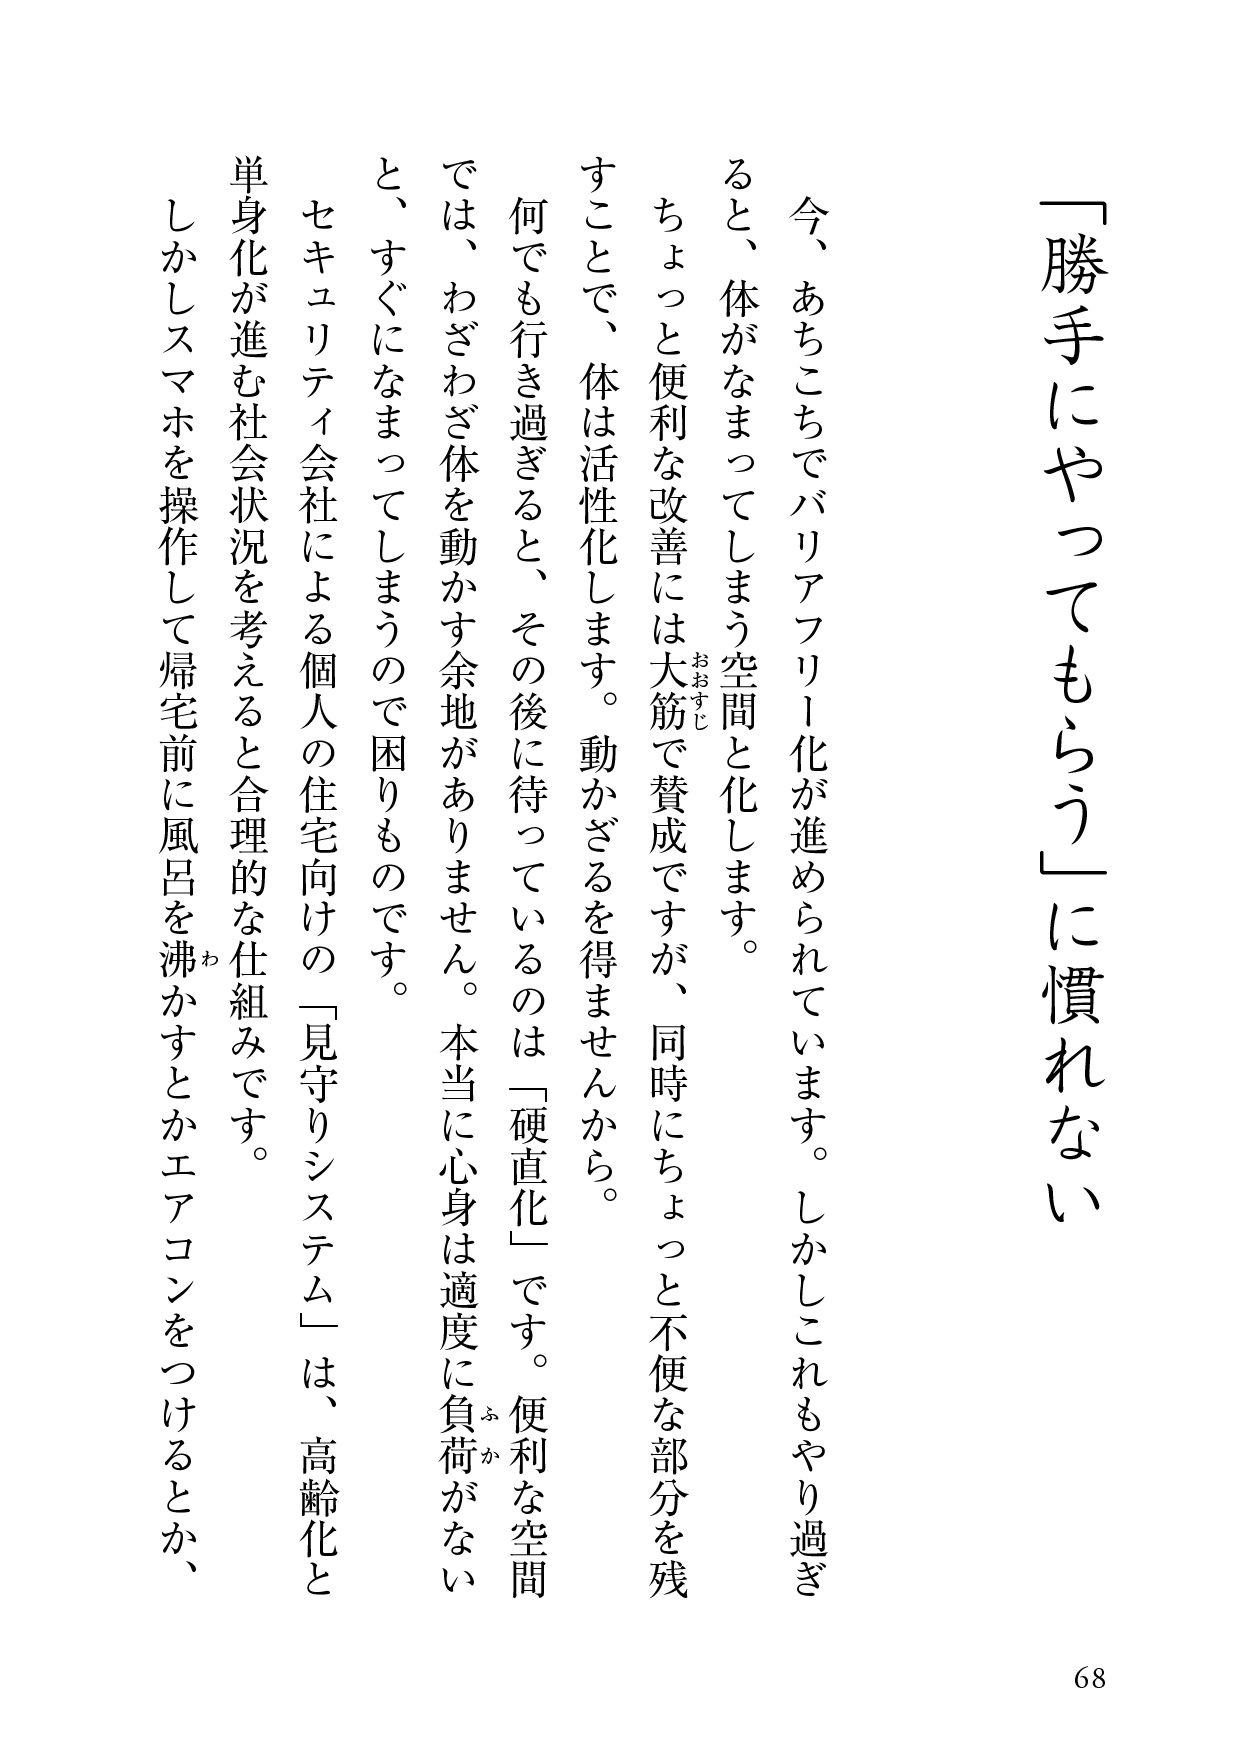 「勝手にやってもらう」に慣れない
今、あちこちでバリアフリー化が進められています。しかしこれもやり過ぎ
ると、体がなまってしまう空間と化します。
ちょっと便利な改善には大筋で賛成ですが、同時にちょっと不便な部分を残
おおすじ
すことで、体は活性化します。動かざるを得ませんから。
何でも行き過ぎると、その後に待っているのは「硬直化」です。便利な空間
では、わざわざ体を動かす余地がありません。本当に心身は適度に負荷がない
ふか
と、すぐになまってしまうので困りものです。
セキュリティ会社による個人の住宅向けの「見守りシステム」は、高齢化と
単身化が進む社会状況を考えると合理的な仕組みです。
しかしスマホを操作して帰宅前に風呂を沸かすとかエアコンをつけるとか、
わ
68